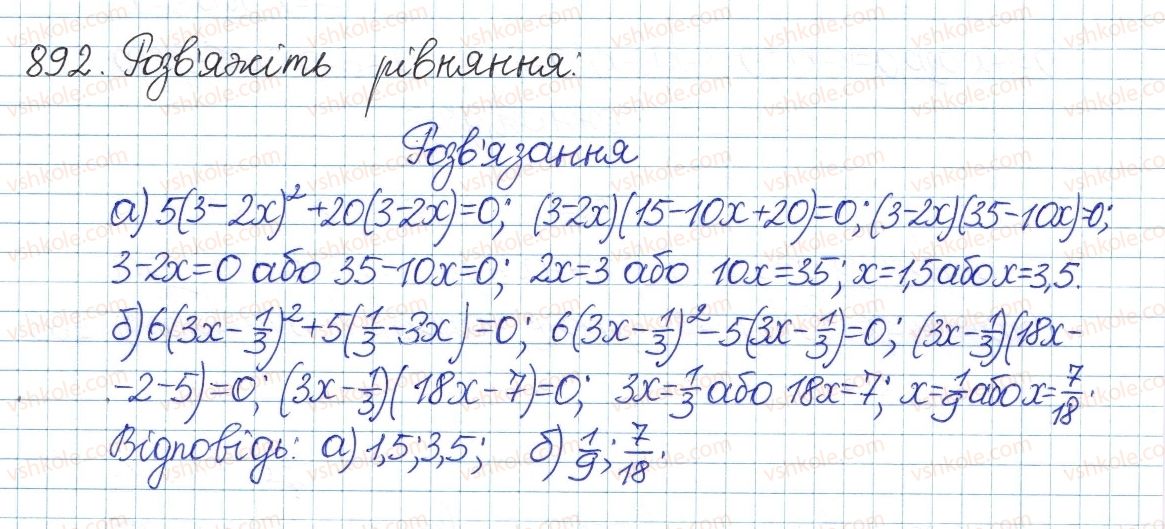 892. Розв'яжіть рівняння:
Розв'язання
а) 5(3-2x)²+20(3-2x)=0; (3-2x)(15-10x+20)=0; (3-2x)(35-10x)=0;
3-2x=0 або 35-10x=0; 2x=3 або 10x=35; x=1,5 або x=3,5.
б) 6(3x-1/3)²+5(1/3-3x)=0; 6(3x-1/3)²-5(3x-1/3)=0; (3x-1/3)(18x-
-2-5)=0; (3x-1/3)(18x-7)=0; 3x=1/3 або 18x=7; x=1/9 або x=7/18.
Відповідь: а) 1,5; 3,5; б) 1/9; 7/18.